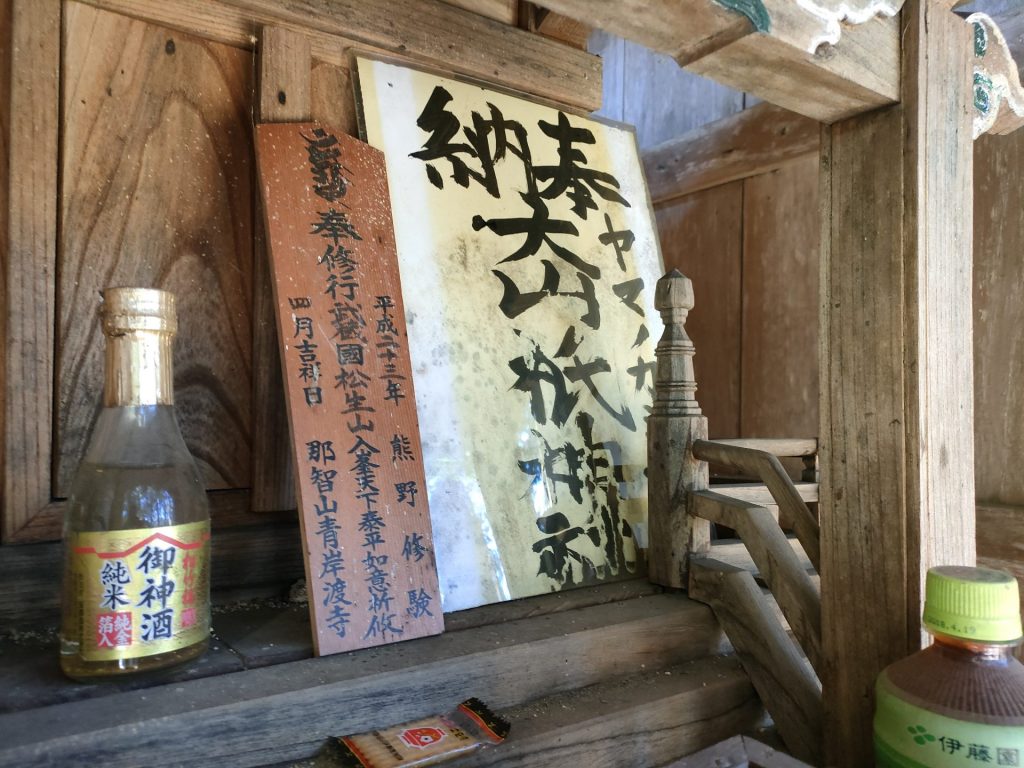 奉納
ヤマノカ
大山祇神社
奉修行武蔵國松生山入峯天下泰平如意祈攸
平成二十三年
四月吉祥日
熊野修験
那智山青岸渡寺
松竹梅
御神酒
純米
純金
箔入
4.19
伊藤園